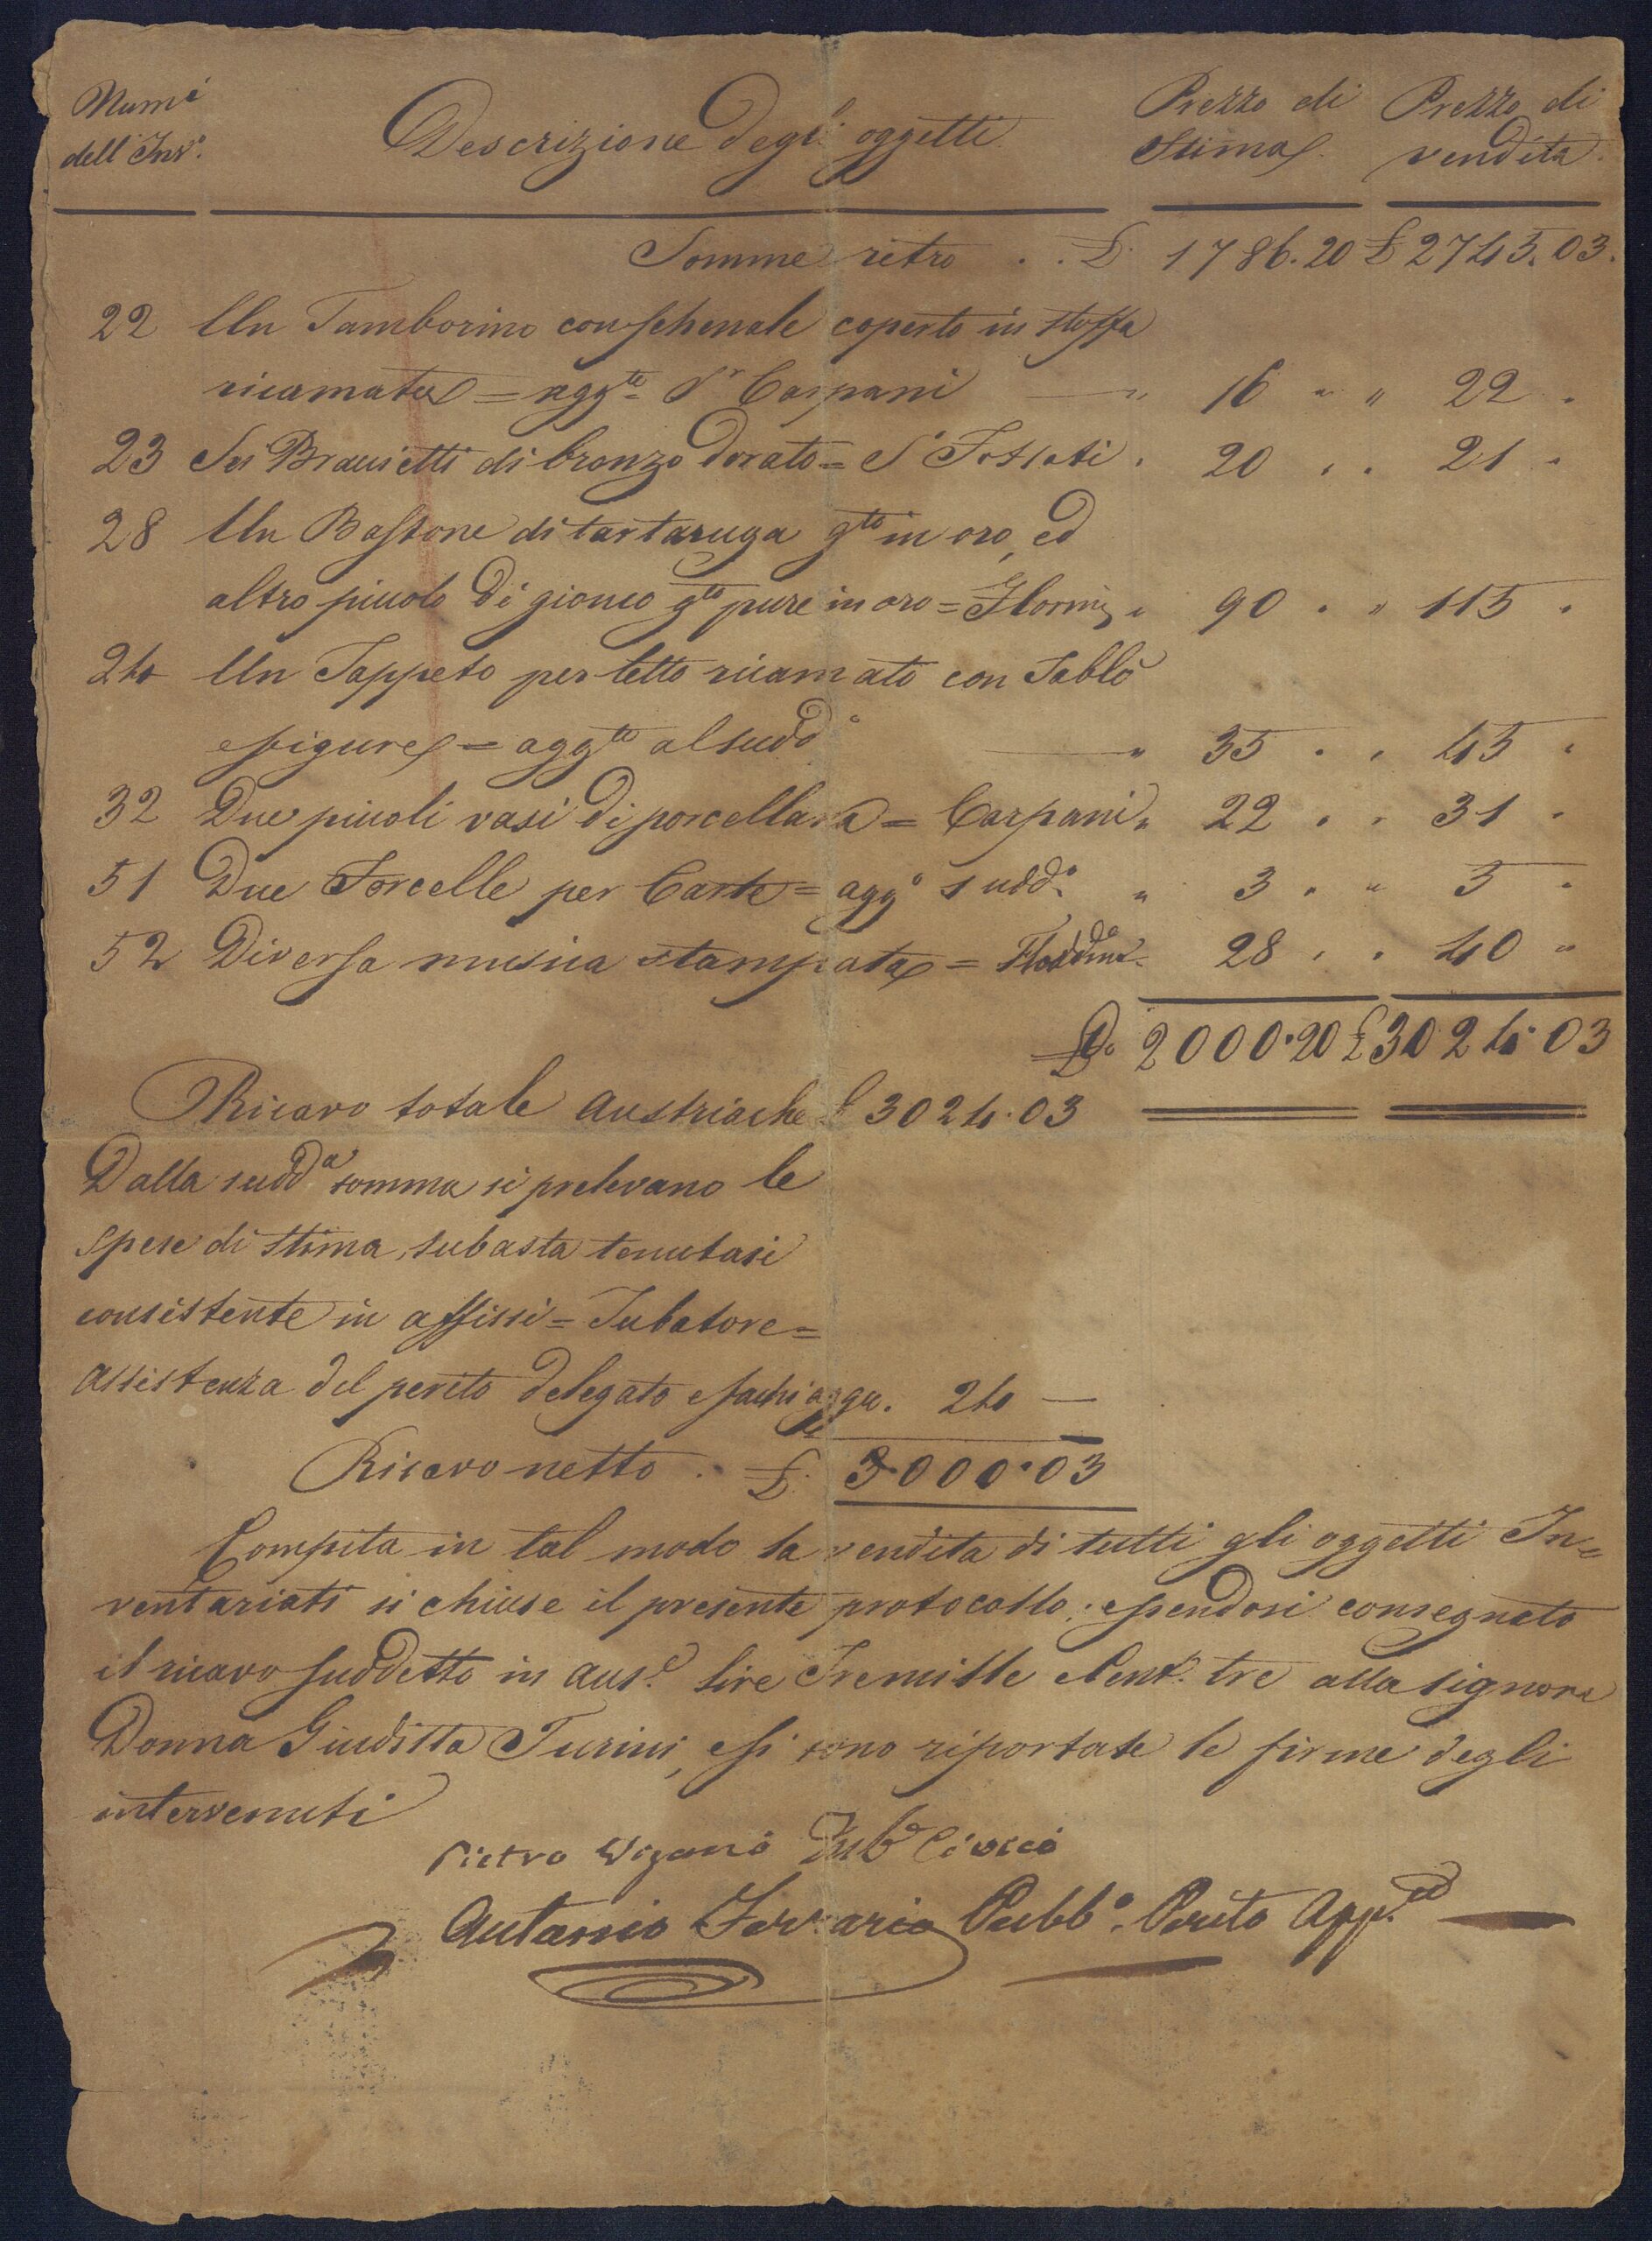 Num.i Descrizione degl'oggetti Prezzo di Prezzo di
dell'Inv.o Stima vendita
Somme retro . . £ 1786.20 £ 2745.03.
22 Un Tamborino con schenale coperto in stoffa
ricamata = agg.te S.r Carpani — " 16 " " 22 .
23 Sei Brancietti di bronzo dorato = S.r Fossati . 20 . . 21 "
28 Un Bastone di tartaruga g.to in oro, ed
altro picolo di gionco g.to pure in oro = " 90 . " 115 .
24 Un Tappeto per letto ricamato con Tablò
e figure = agg.to al sudd.o — " 35 . . 45 "
32 Due picoli vasi di porcellana = Carpani " 22 . . 31 "
51 Due Forcelle per Carte = agg.o sudd.o " 3 " " 5 "
52 Diversa musica stampata = 28 . . 40 "
£. 2000.20 £ 3024.03
Ricavo totale Austriache £ 3024.03
Dalla sudd.a somma si prelevano le
spese di stima, subasta tenutasi
consistente in affissi = Tubatore =
assistenza del perito delegato e fachi aggu. 24 —
Ricavo netto . £. 3000.03
Compita in tal modo la vendita di tutti gli oggetti In=
ventariati si chiuse il presente protocollo; essendosi consegnato
il ricavo suddetto in aus.e lire Tremille e Cent. tre alla signora
Donna Giuditta Turini, e si sono riportate le firme degli
intervenuti
Pietro Wiganò Tub.e Civico
Antonio Ferrario Pubb.o Perito App.to